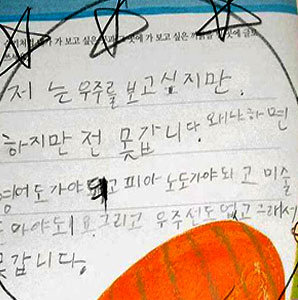 가 보고 싶은
저 는 우주를 보고 싶지만,
하지만 전 못갑니다. 왜냐하면
영어도 가야 되고 피아노도가야 돼고 미술
도 아야도I요. 그리고 우주선도 없고 그래서
못갑니다.